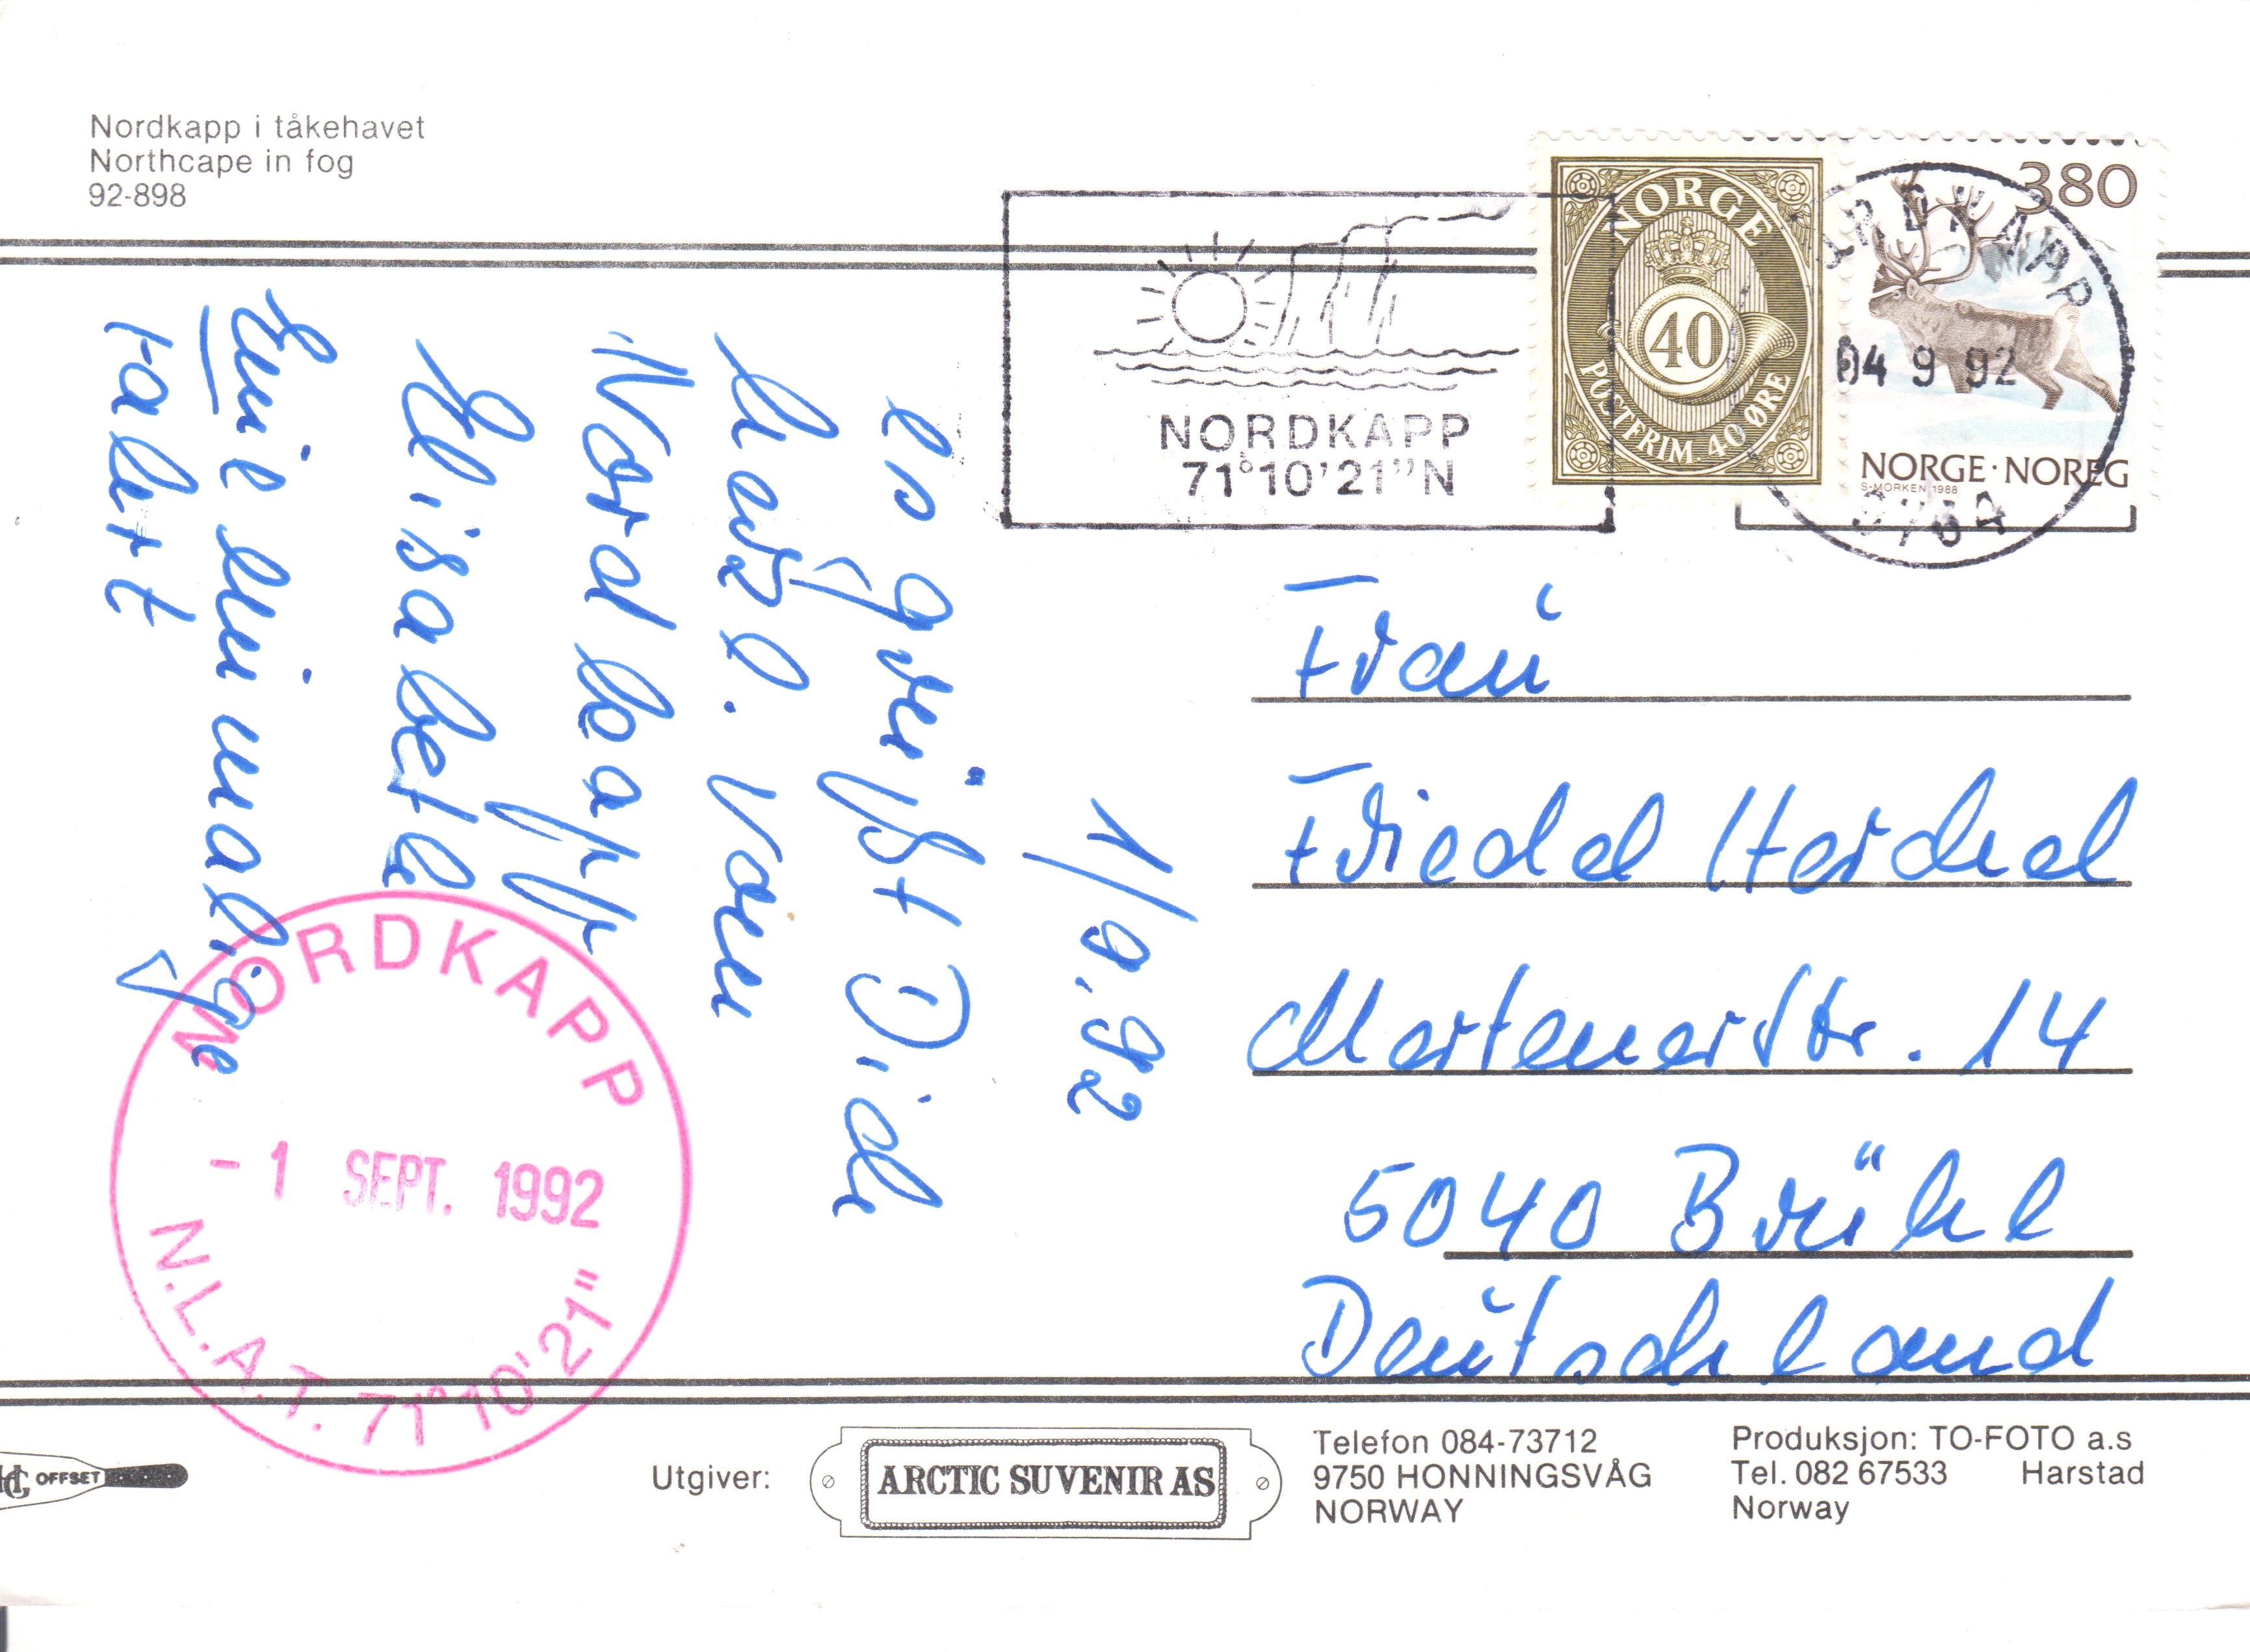 Nordkapp i tåkehavet
Northcape in fog
92-898
NORDKAPP
71°10'21"N
NORGE
40
POSTFRIM. 40 ØRE
380
NORGE·NOREG
S·MORKEN 1988
04 9 92
1/9.92
es grüßt Dich
herzl. vom
Nordkapp
Elisabeth
Eine einmalige
Frau
Friedel Herchel
Mertenerstr. 14
5040 Brühl
Deutschland
NORDKAPP
- 1 SEPT. 1992
N.L.A.T. 71°10'21"
OFFSET
Utgiver:
ARCTIC SUVENIR AS
Telefon 084-73712
9750 HONNINGSVÅG
NORWAY
Produksjon: TO-FOTO a.s
Tel. 082 67533 Harstad
Norway